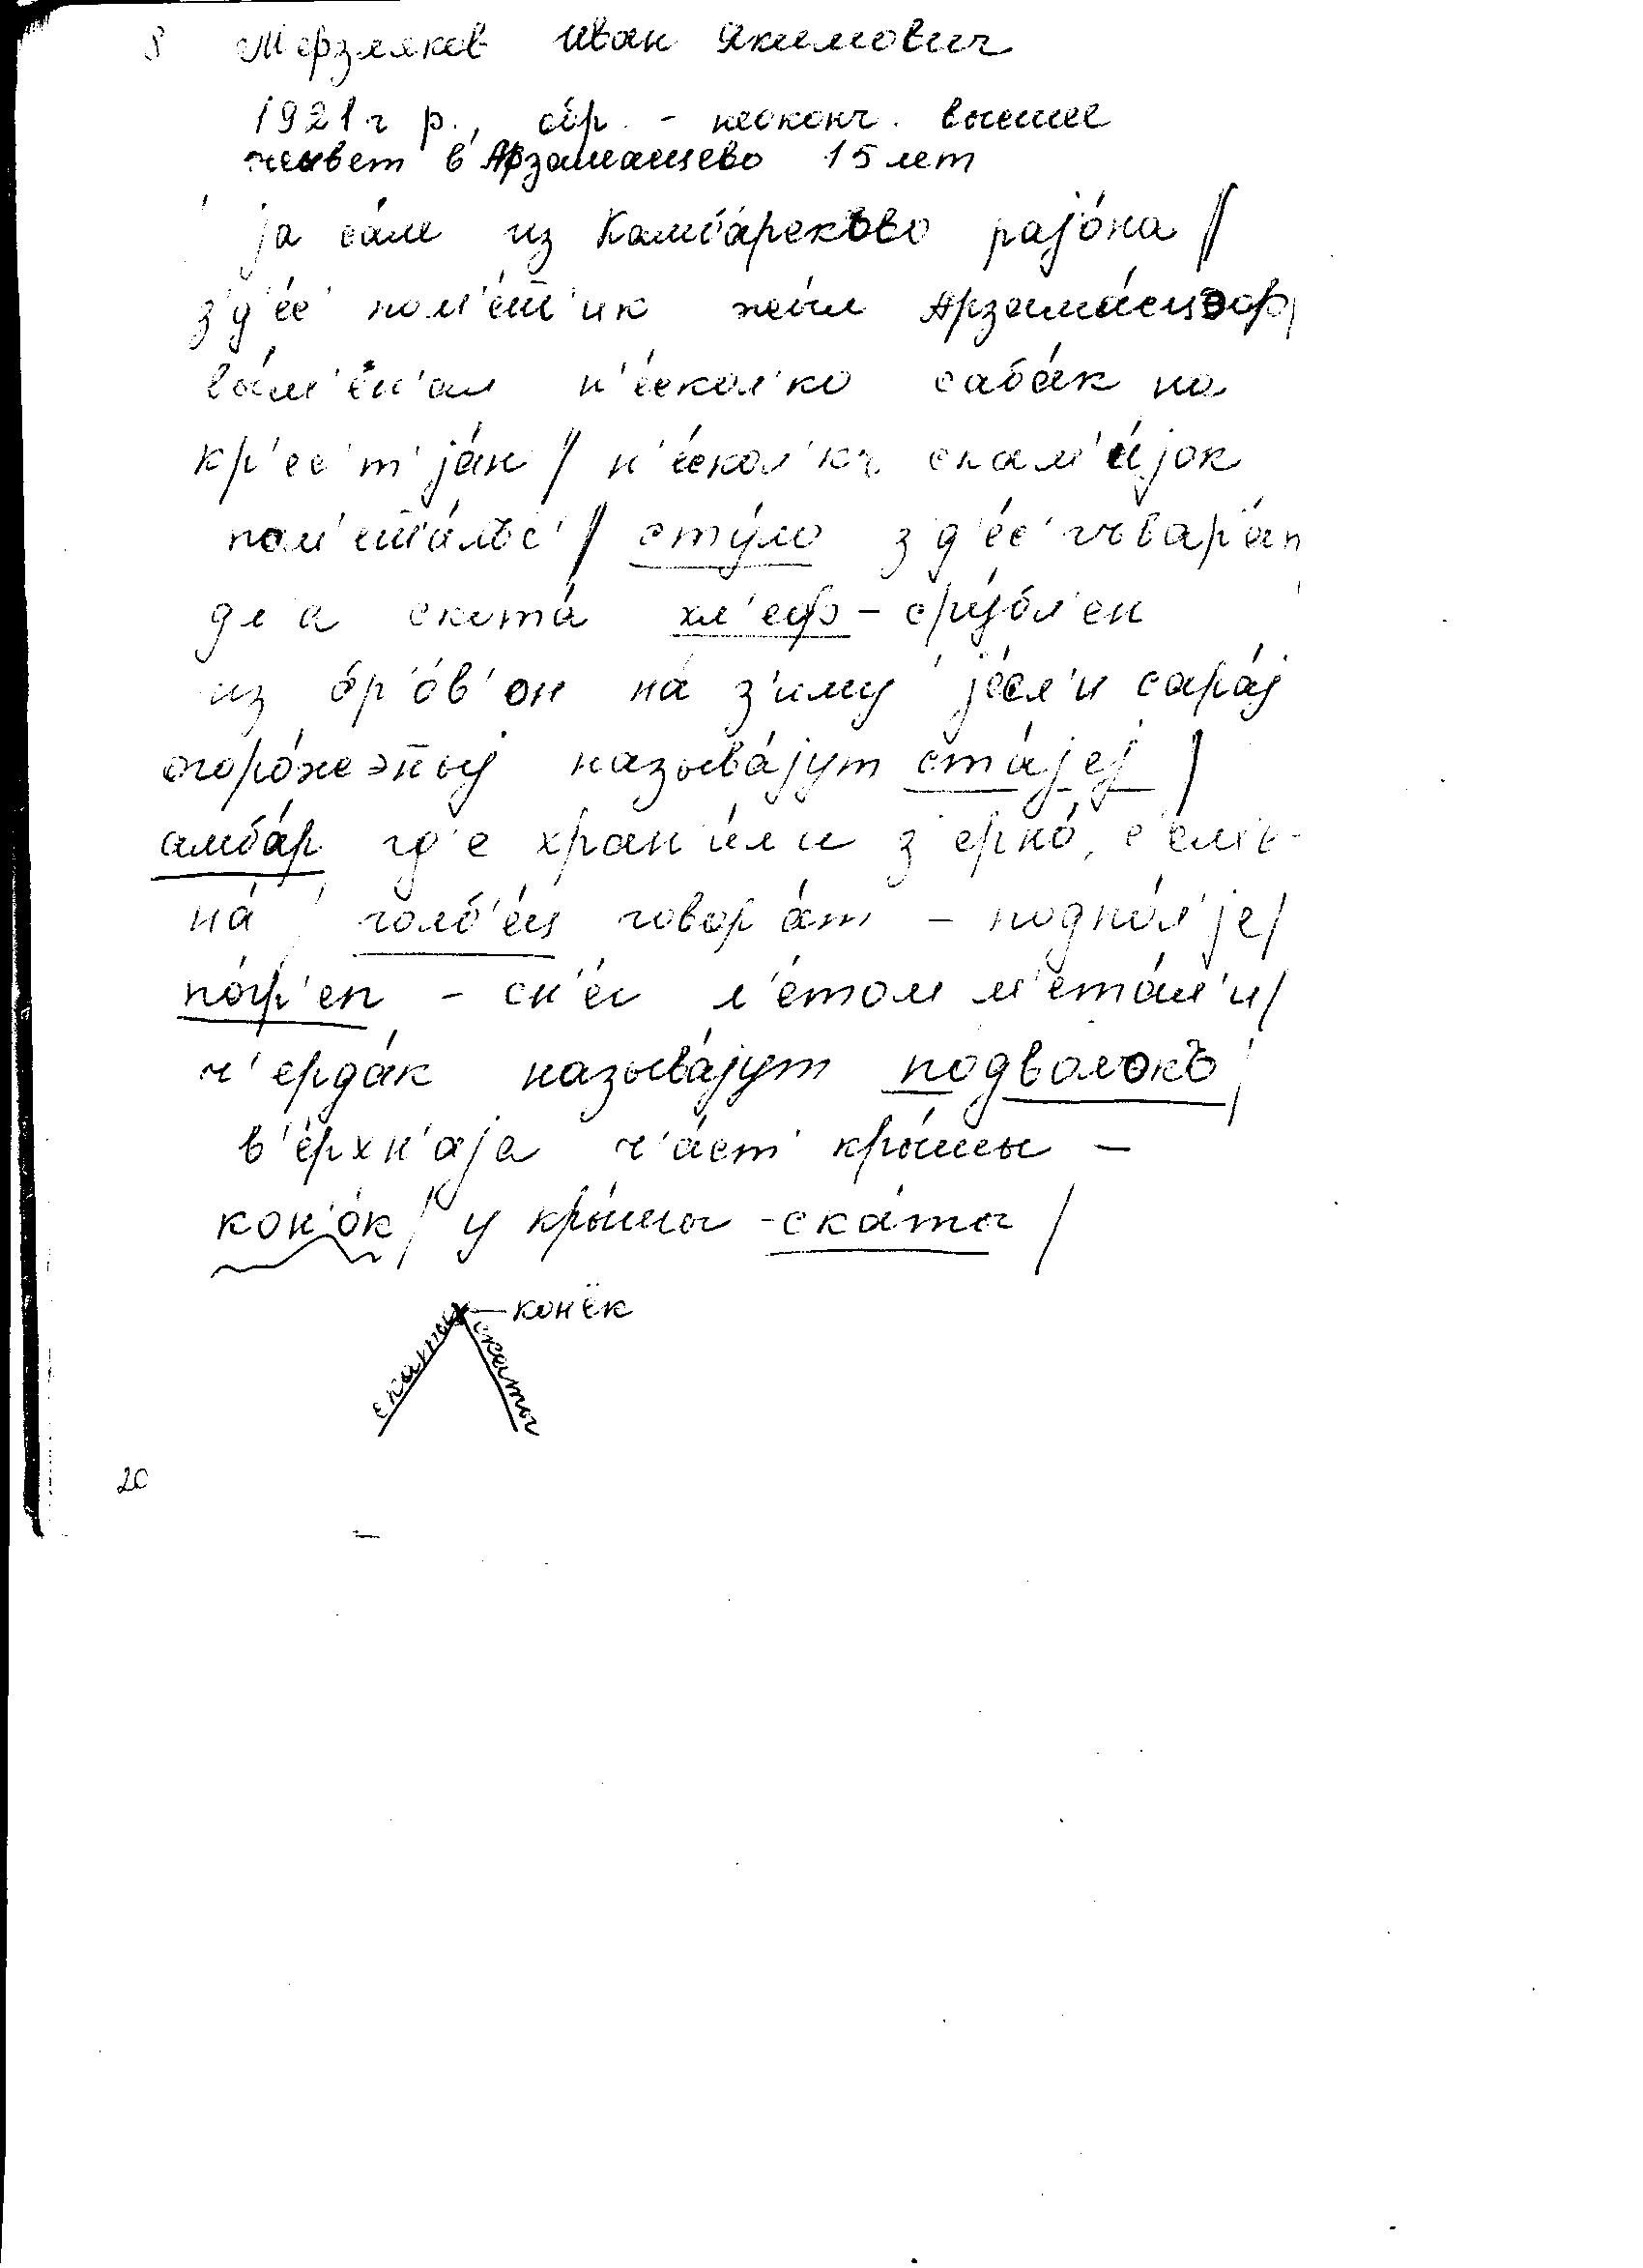 8 Мерзляков Иван Якимович
1921 г р., обр. - неоконч. высшее
живет в Арзамасцево 15 лет
jа са́м из Камба́рскъво раjо́на //
з'д'е́с' пом'е́ш̅'ик жы́л Арзама́сцэф/
вы́м'ен'ал н'е́скол'ко саба́к на
кр'ес'т'jа́н // н'е́скол'къ скам'е́jок
пом'еш̅а́лъс' // сту́ло з'д'е́с' гъвар'а́т
дл'а скота́ хл'еф - сру́бл'ен
из бр'о́в'он на́ з'иму jе́сл'и сара́j
огоро́жэн̅ыj называ́jут ста́jеj /
амба́р гд'е хран'и́ли з'ерно́, с'ем'ь-
на́ / голб'е́ц говор'а́т - подпо́л'jе /
по́гр'еп - сн'е́г л'е́том м'ета́л'и /
ч'ерда́к называ́jут подволокъ /
в'е́рхн'аjа ч'а́ст' кры́шы -
кон'о́к / у кры́шы - ска́ты /
конёк
скаты скаты
20